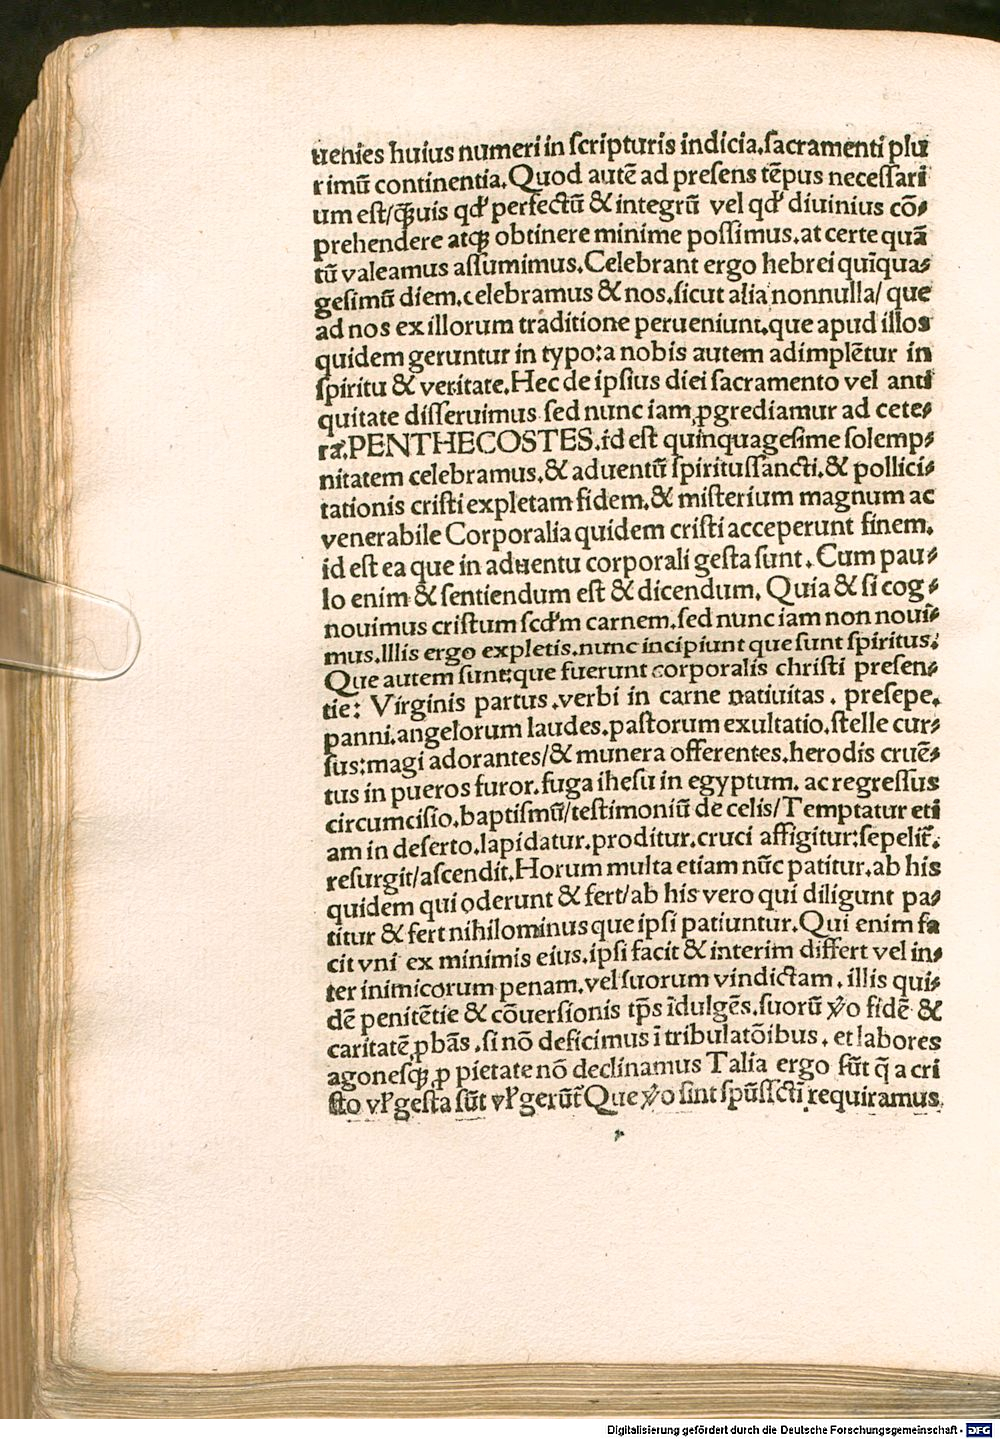 uenies huius numeri in scripturis indicia.sacramenti plu
rimū continentia.Quod autē ad presens tēpus necessari
um est/q̄uis qđ perfectū & integrū vel qđ diuinius cō⸗
prehendere atqꝫ obtinere minime possimus.at certe quā
tū valeamus assumimus.Celebrant ergo hebrei quīqua⸗
gesimū diem.celebramus & nos.sicut alia nonnulla/ que
ad nos ex illorum traditione perueniunt.que apud illos
quidem geruntur in typo:a nobis autem adimplētur in
spiritu & veritate.Hec de ipsius diei sacramento vel anti
quitate disseruimus sed nunc iam ꝓgrediamur ad cete⸗
ra.PENTHECOSTES.id est quinquagesime solemp⸗
nitatem celebramus.& aduentū spiritussancti.& pollici⸗
tationis cristi expletam fidem.& misterium magnum ac
venerabile Corporalia quidem cristi acceperunt finem.
id est ea que in aduentu corporali gesta sunt. Cum pau⸗
lo enim & sentiendum est & dicendum. Quia & si cog⸗
nouimus cristum scđm carnem.sed nunc iam non nouī⸗
mus.Illis ergo expletis.nunc incipiunt que sunt spiritus.
Que autem sunt:que fuerunt corporalis christi presen⸗
tie: Virginis partus.verbi in carne natiuitas. presepe.
panni.angelorum laudes.pastorum exultatio.stelle cur⸗
sus:magi adorantes/& munera offerentes.herodis cruē⸗
tus in pueros furor.fuga ihesu in egyptum. ac regressus
circumcisio.baptismū/testimoniū de celis/Temptatur eti
am in deserto.lapidatur.proditur.cruci affigitur:sepelit᷑.
resurgit/ascendit.Horum multa etiam nūc patitur.ab his
quidem qui oderunt & fert/ab his vero qui diligunt pa⸗
titur & fert nihilominus que ipsi patiuntur.Qui enim fa
cit vni ex minimis eius.ipsi facit & interim differt vel in⸗
ter inimicorum penam.vel suorum vindictam. illis qui⸗
dē penitētie & cōuersionis tp̄s īdulgēs.suorū ṽo fidē &
caritatē ꝓbās.si nō deficimus ī tribulatōibus. et labores
agonesqꝫ ꝓ pietate nō declinamus Talia ergo sūt q̄ a cri
sto vꝉ gesta sūt vꝉ gerūt᷑ Que ṽo sint spūssctī requiramus.
Digitalisierung gefördert durch die Deutsche Forschungsgemeinschaft - DFG